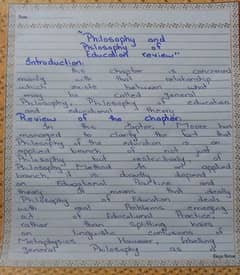 "Philosophy and
Philosophy of
Education review"
Introduction:
the chapter is concerned
mainly with that relationship
which exists between what
may be called general
Philosophy, Philosophy of education
and educational theory
Review of the chapter:
In this chapter, Moore has
managed to clarify the fact that
Philosophy of the education is an
applied branch not just
Philosophy but
Philosophy Method As an applied
branch, it is directly depend
on Educational Practice and
theory It means that
Philosophy of Education deals
with Problems emerging
out of Educational Practice,
rather than splitting hairs
on linguistic confusions of
Metaphysics However
general Philosophy as if